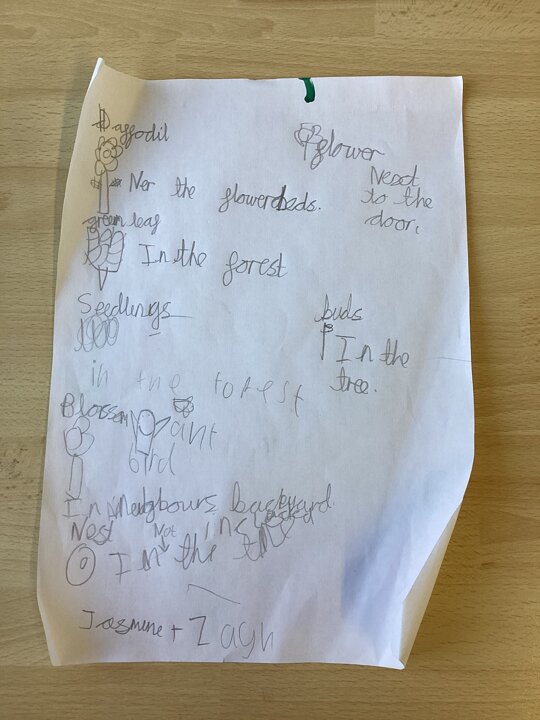 Daffodil
flower
Ner the flowerbeds.
Next
to the
door.
green leaf
In the forest
Seedlings
buds
In the
tree.
in the forest
Blossom
ant
bird
In Neighbours backyard
Nest
Not
In the tree
Jasmine + Zayn